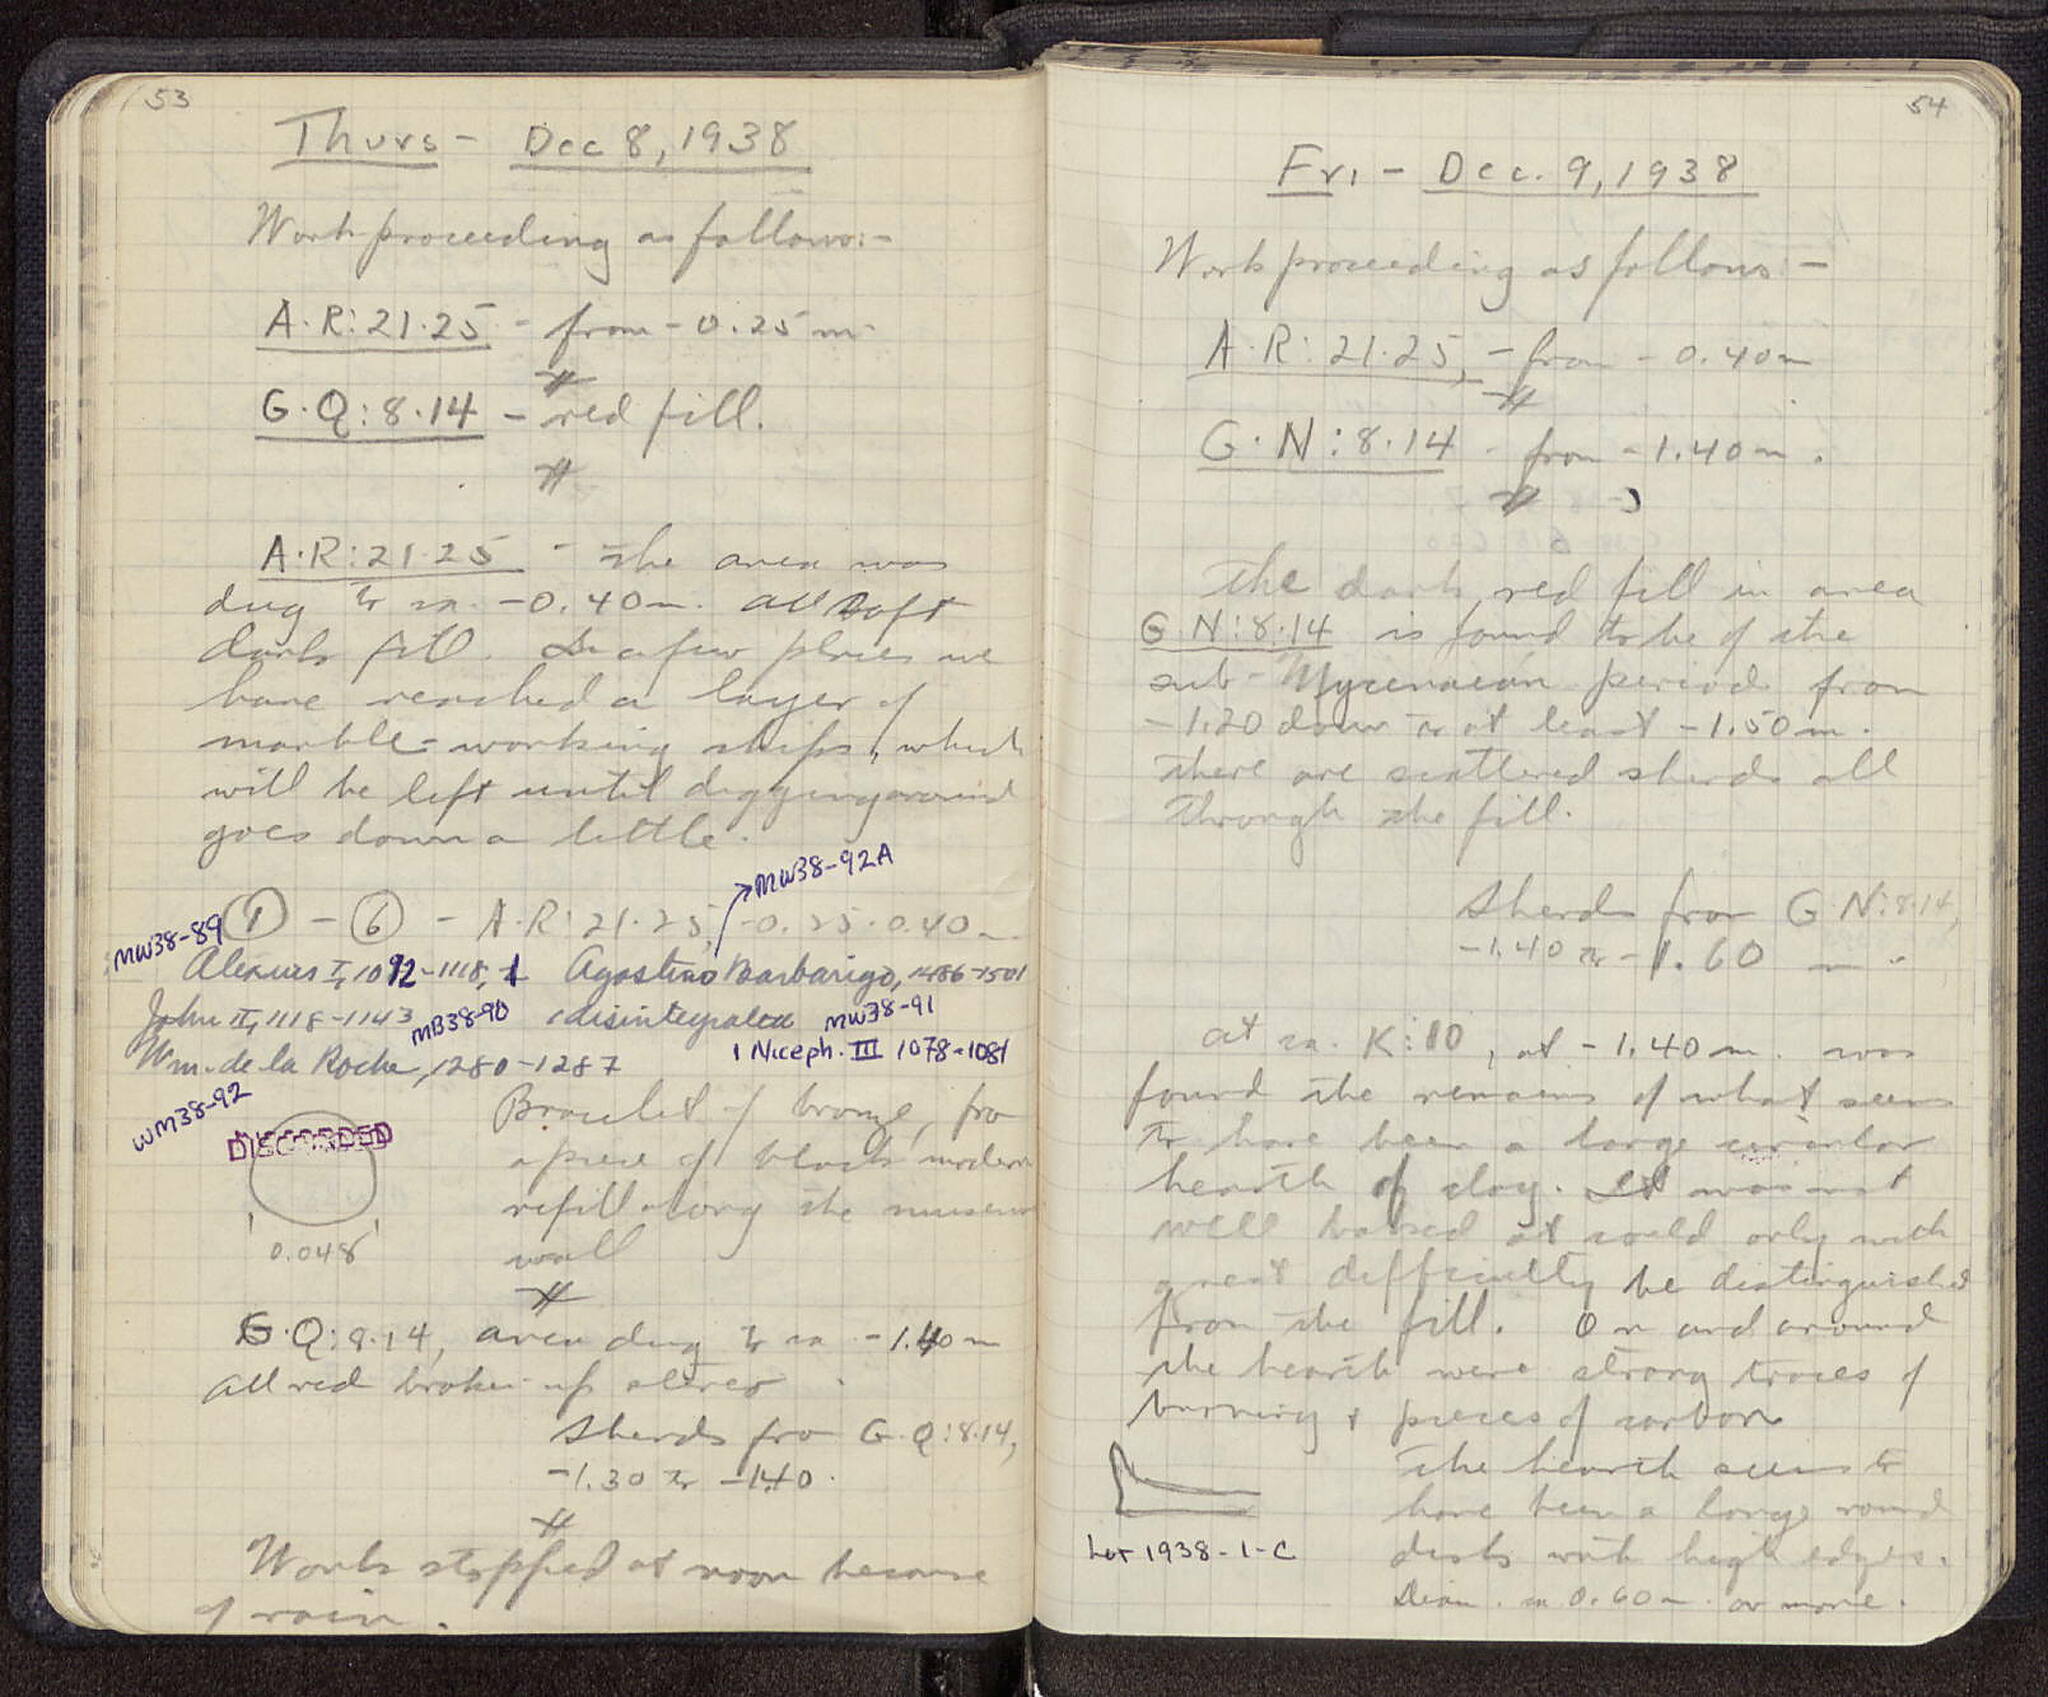 53
Thurs - Dec 8, 1938
Work proceeding as follows:-
A·R:21·25 - from -0.25 m.
G·Q:8·14 - red fill.
A·R:21·25 - The area was
dug to ca. -0.40m. All soft
dark fill. In a few places we
have reached a layer of
marble-working chips, which
will be left until digging around
goes down a little.
MW38-92A
MW38-89
1 - 6 - A·R:21·25, -0.25-0.40m
Alexius I, 1092-1118, 1 Agostino Barbarigo, 1486-1501
John II, 1118-1143 MB38-90 1 disintegrated MW38-91
Wm. de la Roche, 1280-1287 1 Niceph. III 1078-1081
WM38-92
DISCARDED
0.048
Bracelet of bronze, fro
a piece of black modern
refill along the museum
wall
G·Q:8·14, area dug to ca -1.40m
All red broken-up
Sherds fro G·Q:8·14,
-1.30 to -1.40.
Work stopped at noon because
of rain.
54
Fri - Dec. 9, 1938
Work proceeding as follows -
A·R:21·25, - from - 0.40m
G·N:8·14 - from -1.40m.
The dark, red fill in area
G·N:8·14 is found to be of the
sub-Mycenaean period from
-1.20 down to at least -1.50m.
There are scattered sherds all
through the fill.
Sherds from G·N:8·14,
-1.40 to -1.60 m.
At ca. K:10, at -1.40m. was
found the remains of what seems
to have been a large circular
hearth of clay. It was not
well baked at could only with
great difficulty be distinguished
from the fill. On and around
the hearth were strong traces of
burning & pieces of carbon
The hearth seems to
have been a large round
dish with high edges.
Diam. ca 0.60m. or more.
Lot 1938-1-C